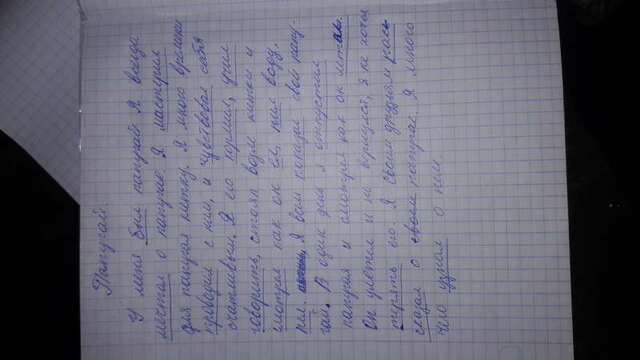 Попугай.
У меня был папугай. Я всегда
мечтал о папугае. Я мастерил
для папугая клетку. Я много времени
проводил с ним, и чувствовал себя
счатливым. Я его кормил, учил
говорить, стоял возле клетки и
смотрел как он ел, пил воду,
пел. Я всем показал свой папу-
гай. В один день я отпустил
папугая и смотрел как он летал.
Он улетел и не вернулся, я не хотел
терять его. Я своим друзьям рас-
сказал о своем папугае. Я много
чего узнал о нем